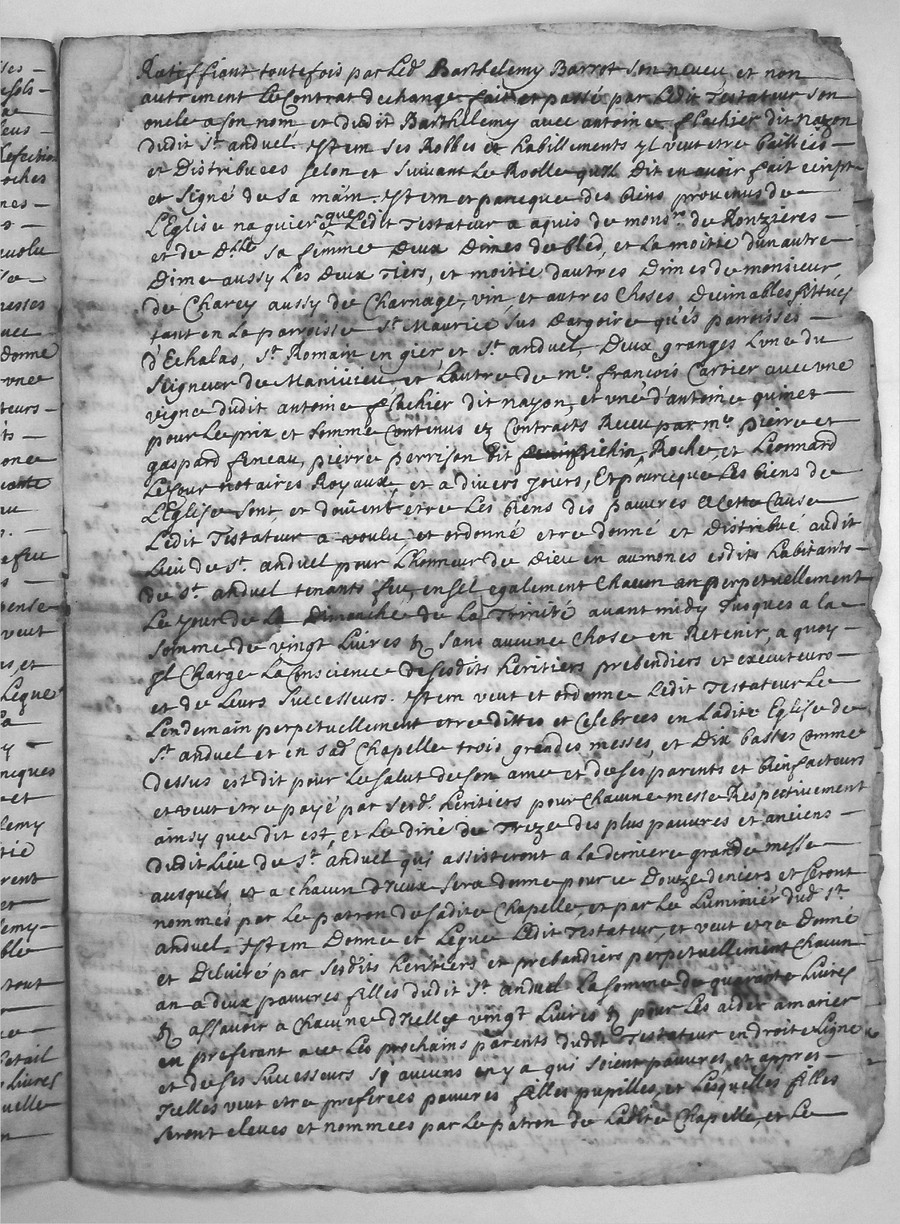 Ratiffiant toutefois par Led. Barthelemy Barrot son neveu et non
autrement Le Contrat dechange fait et passé par Ledit Testateur son
oncle a son nom et dudit Barthelemy avec antoine flachier dit nayon
dudit St. anduel. Jtem ses Robbes et habillements yl veut etre baillées
et Distribuees selon et suivant Le Roolle quil Dit en avoir fait ecript
et signé de sa main. Jtem et parceque des biens provenus de
L'Eglise naguiere que Ledit Testateur a aquis de monsr. de Ronzieres
et de Dlle sa femme Deux Dimes de bled, et La moitie dun autre
Dime aussy Les Deux Tiers, et moitié dautres Dimes de monsieur
de Charey aussy de Charnage, vin et autres Choses Decimables sittués
tant en La parroisse St. Maurice sus dargoire qu'es parroisses
d'Echalas, St. Romain en gier et St. anduel, Deux granges Lune du
Seigneur de Manivieu et Lautre de me. françois Cartier avec une
vigne dudit antoine flachier dit nayon, et une d'antoine quinet
pour Le prix et somme Contenus ez Contracts Receu par mes pierre et
gaspard fineau, pierre perrison dit Roche et Leonnard
Lesour notaires Royaux, et a divers jours, Et pourceque Les biens de
L'Eglise sont et doivent être Les biens des pauvres a Cette Cause
Ledit Testateur a voulu et ordonné etre donné et Distribué audit
Lieu de St. anduel pour Lhonneur de Dieu en aumones esdits habitants
de St. anduel tenants feu, ensel egalement Chacun an perpetuellement
Le jour de La Dimanche de La Trinité avant midy Jusques a la
somme de vingt Livres sans aucune Chose en Retenir, a quoy
yl Charge La Conscience de sesdits heritiers prebendiers et executeurs
et de Leurs successeurs. Jtem veut et ordonne Ledit Testateur Le
Lendemain perpetuellement etre dittes et Celebrées en Ladite Eglise de
St. anduel et en sad. Chapelle trois grandes messes, et Dix basses Comme
dessus est dit pour Le salut de son ame et de ses parents et bienfacteurs
et veut etre payé par sesd. heritiers pour Chacune messe Respectivement
ainsy que dit est, et Le diné de Treze des plus pauvres et anciens
dudit Lieu de St. anduel qui assisteront a La derniere grande messe
ausquels et a chacun d'Jceux sera donne pour ce Douze deniers et seront
nommés par Le patron de sadite Chapelle, et par Le Luminier dud. St.
anduel. Jtem Donne et Legue Ledit Testateur, et veut etre Donné
et Delivré par sesdits heritiers et prebandiers perpetuellement Chacun
an a deux pauvres filles dudit St. anduel La somme de quarante Livres
assavoir a Chacune d'Jcelles vingt Livres pour Les aider a marier
en preferant avec Les prochains parents dudit Testateur en droite Ligne
et de ses successeurs sy aucuns en y a qui soient pauvres, et appres
Jcelles veut etre preferees pauvres filles pupilles, et Lesquelles filles
seront eleues et nommees par Le patron de Ladite Chapelle, et Le